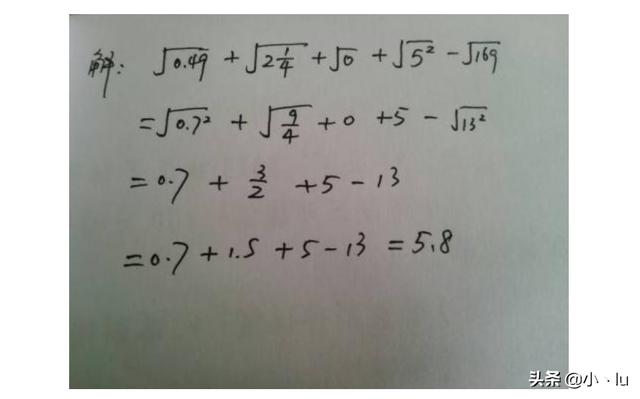 解: √0.49 + √2 1/4 + √0 + √5² - √169
= √0.7² + √9/4 + 0 + 5 - √13²
= 0.7 + 3/2 + 5 - 13
= 0.7 + 1.5 + 5 - 13 = 5.8
头条 @小丶lu